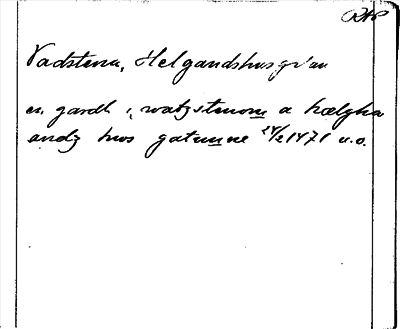 RAP
Vadstena, Helgandshusgr'an
en gardh i watzstenom a hælgha
andz hws gatunne 24/2 1471 u.o.